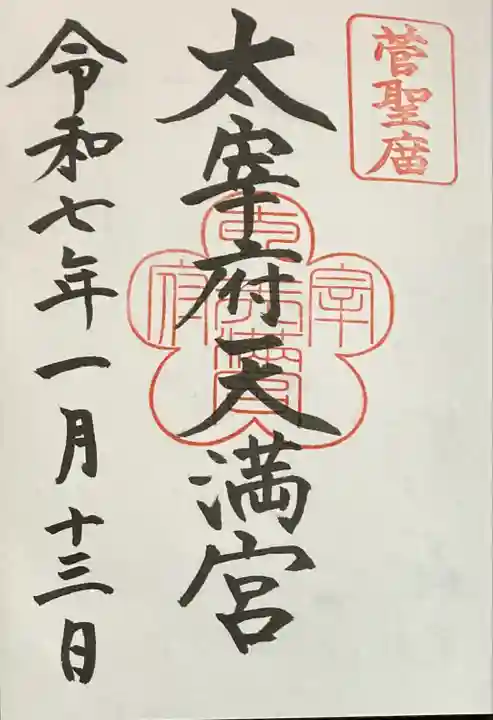 菅聖廟
太宰府天満宮
令和七年一月十三日